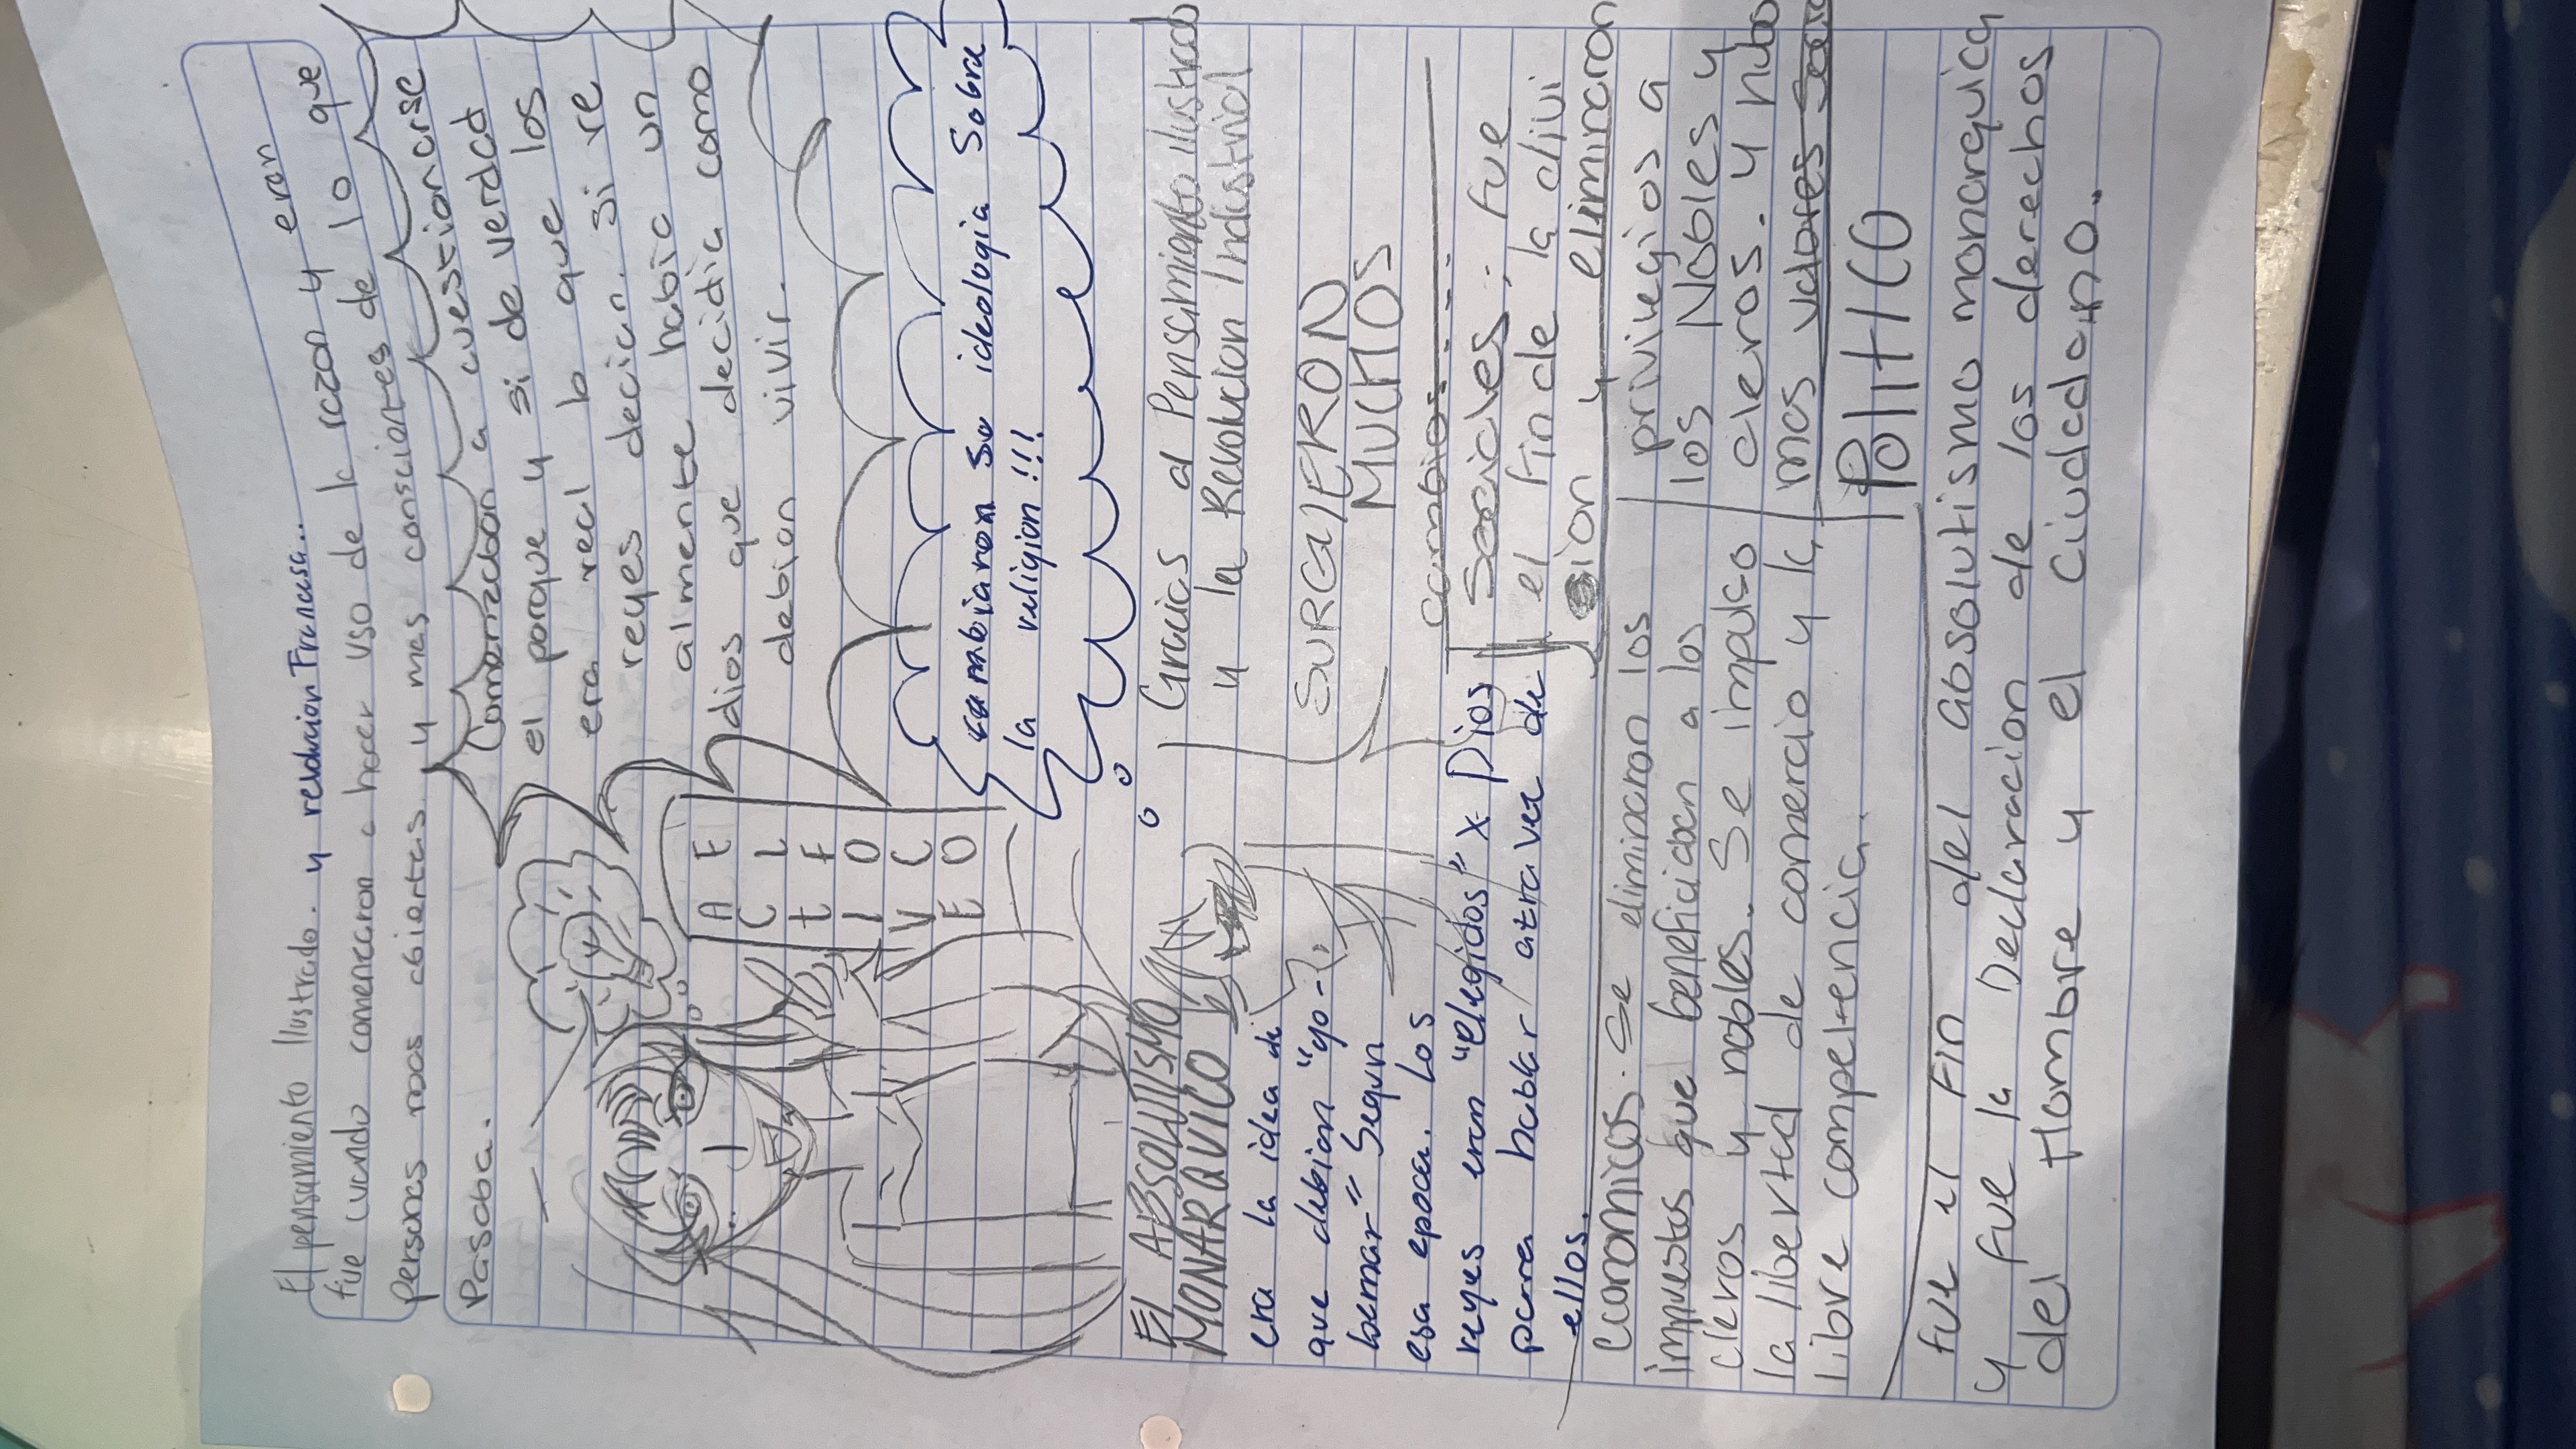 El pensamiento Ilustrado. y revolucion Francesa..
fue cuando comenzaron a hacer uso de la razon y eran
personas mas abiertas y mas conscientes de lo que
Pasaba.
Comenzaban a cuestionarse
el porque y si de verdad
era real lo que los
reyes decian. si re
almente habia un
dios que decidia como
debian vivir.
A E
C L
t F
I O
V C
E O
cambiaron su ideologia Sobre
la religion !!!
El ABSOLUTISMO
MONARQUICO
era la idea de
que debian "go-
bernar" Segun
esa epoca. Los
reyes eran "elegidos" x Dios
para hablar atravez de
ellos.
Gracias al Pensamiento ilustrado
y la Revolucion Industrial
SURGIERON
MUCHOS
cambios...
Sociales: fue
el fin de la divi
sion y eliminaron
privilegios a
los Nobles y
cleros. y hubo
mas valores
economicos. Se eliminaron los
impuestos que beneficiaban a los
cleros y nobles. Se impulso
la libertad de comercio y la
libre compentencia.
PolitICO
fue el Fin del absolutismo monarquica
y fue la Declaracion de los derechos
del Hombre y el ciudadano.